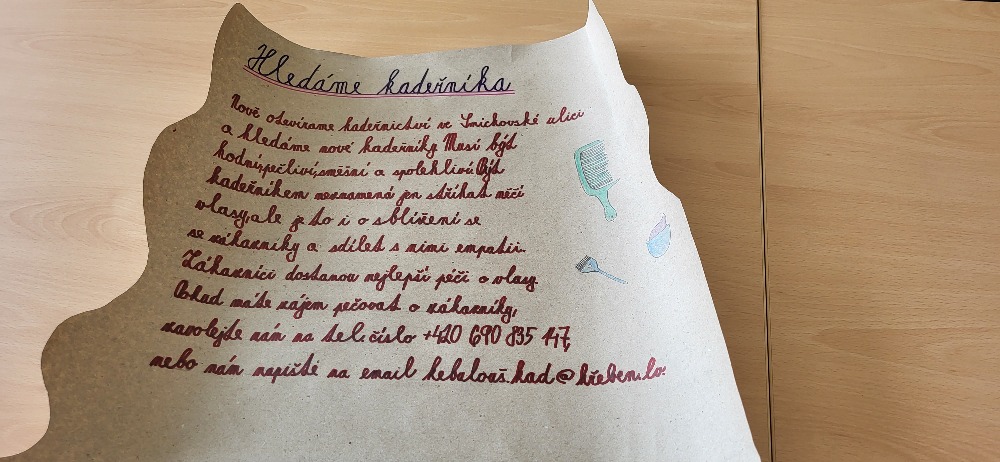 Hledáme kadeřníka
Nově otevíráme kadeřnictví ve Smíchovské ulici
a hledáme nové kadeřníky. Musí být
hodní, pečliví, směšní a spolehliví. Být
kadeřníkem neznamená jen stříhat něčí
vlasy, ale je to i o sblížení se
se zákazníky a sdílet s nimi empatii.
Zákazníci dostanou nejlepší péči o vlasy.
Pokud máte zájem pečovat o zákazníky,
zavolejte nám na tel. číslo +420 690 835 147,
nebo nám napiště na email kad@hřeben.lo.